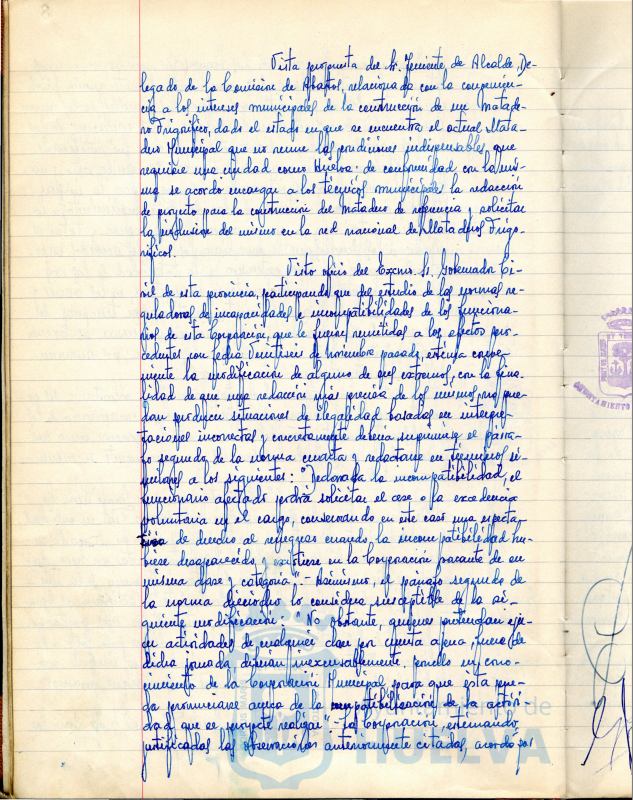 Vista propuesta del Sr. Teniente de Alcalde, De-
legado de la Comisión de Abastos, relacionada con la convenien-
cia a los intereses municipales de la construcción de un Matade-
ro Frigorífico, dado el estado en que se encuentra el actual Mata-
dero Municipal que no reune las condiciones indispensables que
requiere una ciudad como Huelva: de conformidad con la mis-
ma se acordó encargar a los técnicos municipales la redacción
de proyecto para la construcción del matadero de referencia y solicitar
la inclusión del mismo en la red nacional de Mataderos Frigo-
ríficos.
Visto oficio del Excmo. Sr. Gobernador Ci-
vil de esta provincia, participando que del estudio de las normas re-
guladoras de incapacidades e incompatibilidades de los funciona-
rios de esta Corporación, que le fueron remitidas a los efectos pro-
cedentes con fecha veintiseis de noviembre pasado, estima conve-
niente la modificación de alguno de sus extremos, con la fina-
lidad de que una redacción más precisa de los mismos no pue-
dan producir situaciones de ilegalidad basadas en interpre-
taciones incorrectas y concretamente debería suprimirse el párra-
fo segundo de la norma cuarta y redactarse en términos si-
milares a los siguientes: "Declarada la incompatibilidad, el
funcionario afectado podrá solicitar el cese o la excedencia
voluntaria en el cargo, conservando en este caso una expecta-
tiva de derecho al reingreso cuando la incompatibilidad hu-
biese desaparecido y existiere en la Corporación vacante de su
misma clase y categoría".- Asimismo, el párrafo segundo de
la norma dieciocho lo considera susceptible de la si-
guiente modificación: "No obstante, quienes pretendan ejer-
cer actividades de cualquier clase por cuenta ajena, fuera de
dicha jornada deberán inexcusablemente, ponerlo en cono-
cimiento de la Corporación Municipal, para que esta pue-
da pronunciarse acerca de la compatibilización de la activi-
dad que se proyecte realizar".- La Corporación estimando
justificadas las observaciones anteriormente citadas, acordó por
HUELVA